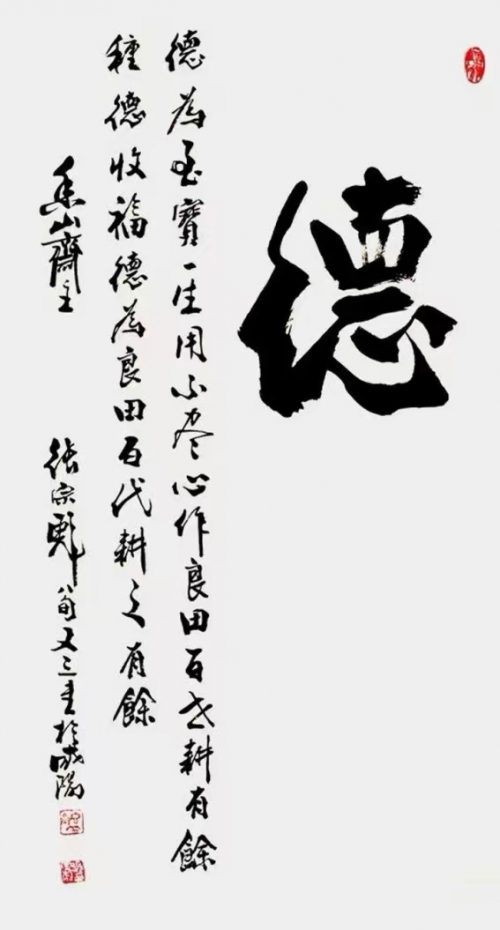 德
德為至寶一生用不尽心作良田百世耕有餘
種德收福德為良田百代耕之有餘
山齋主
張宗彪八旬又三書於咸陽